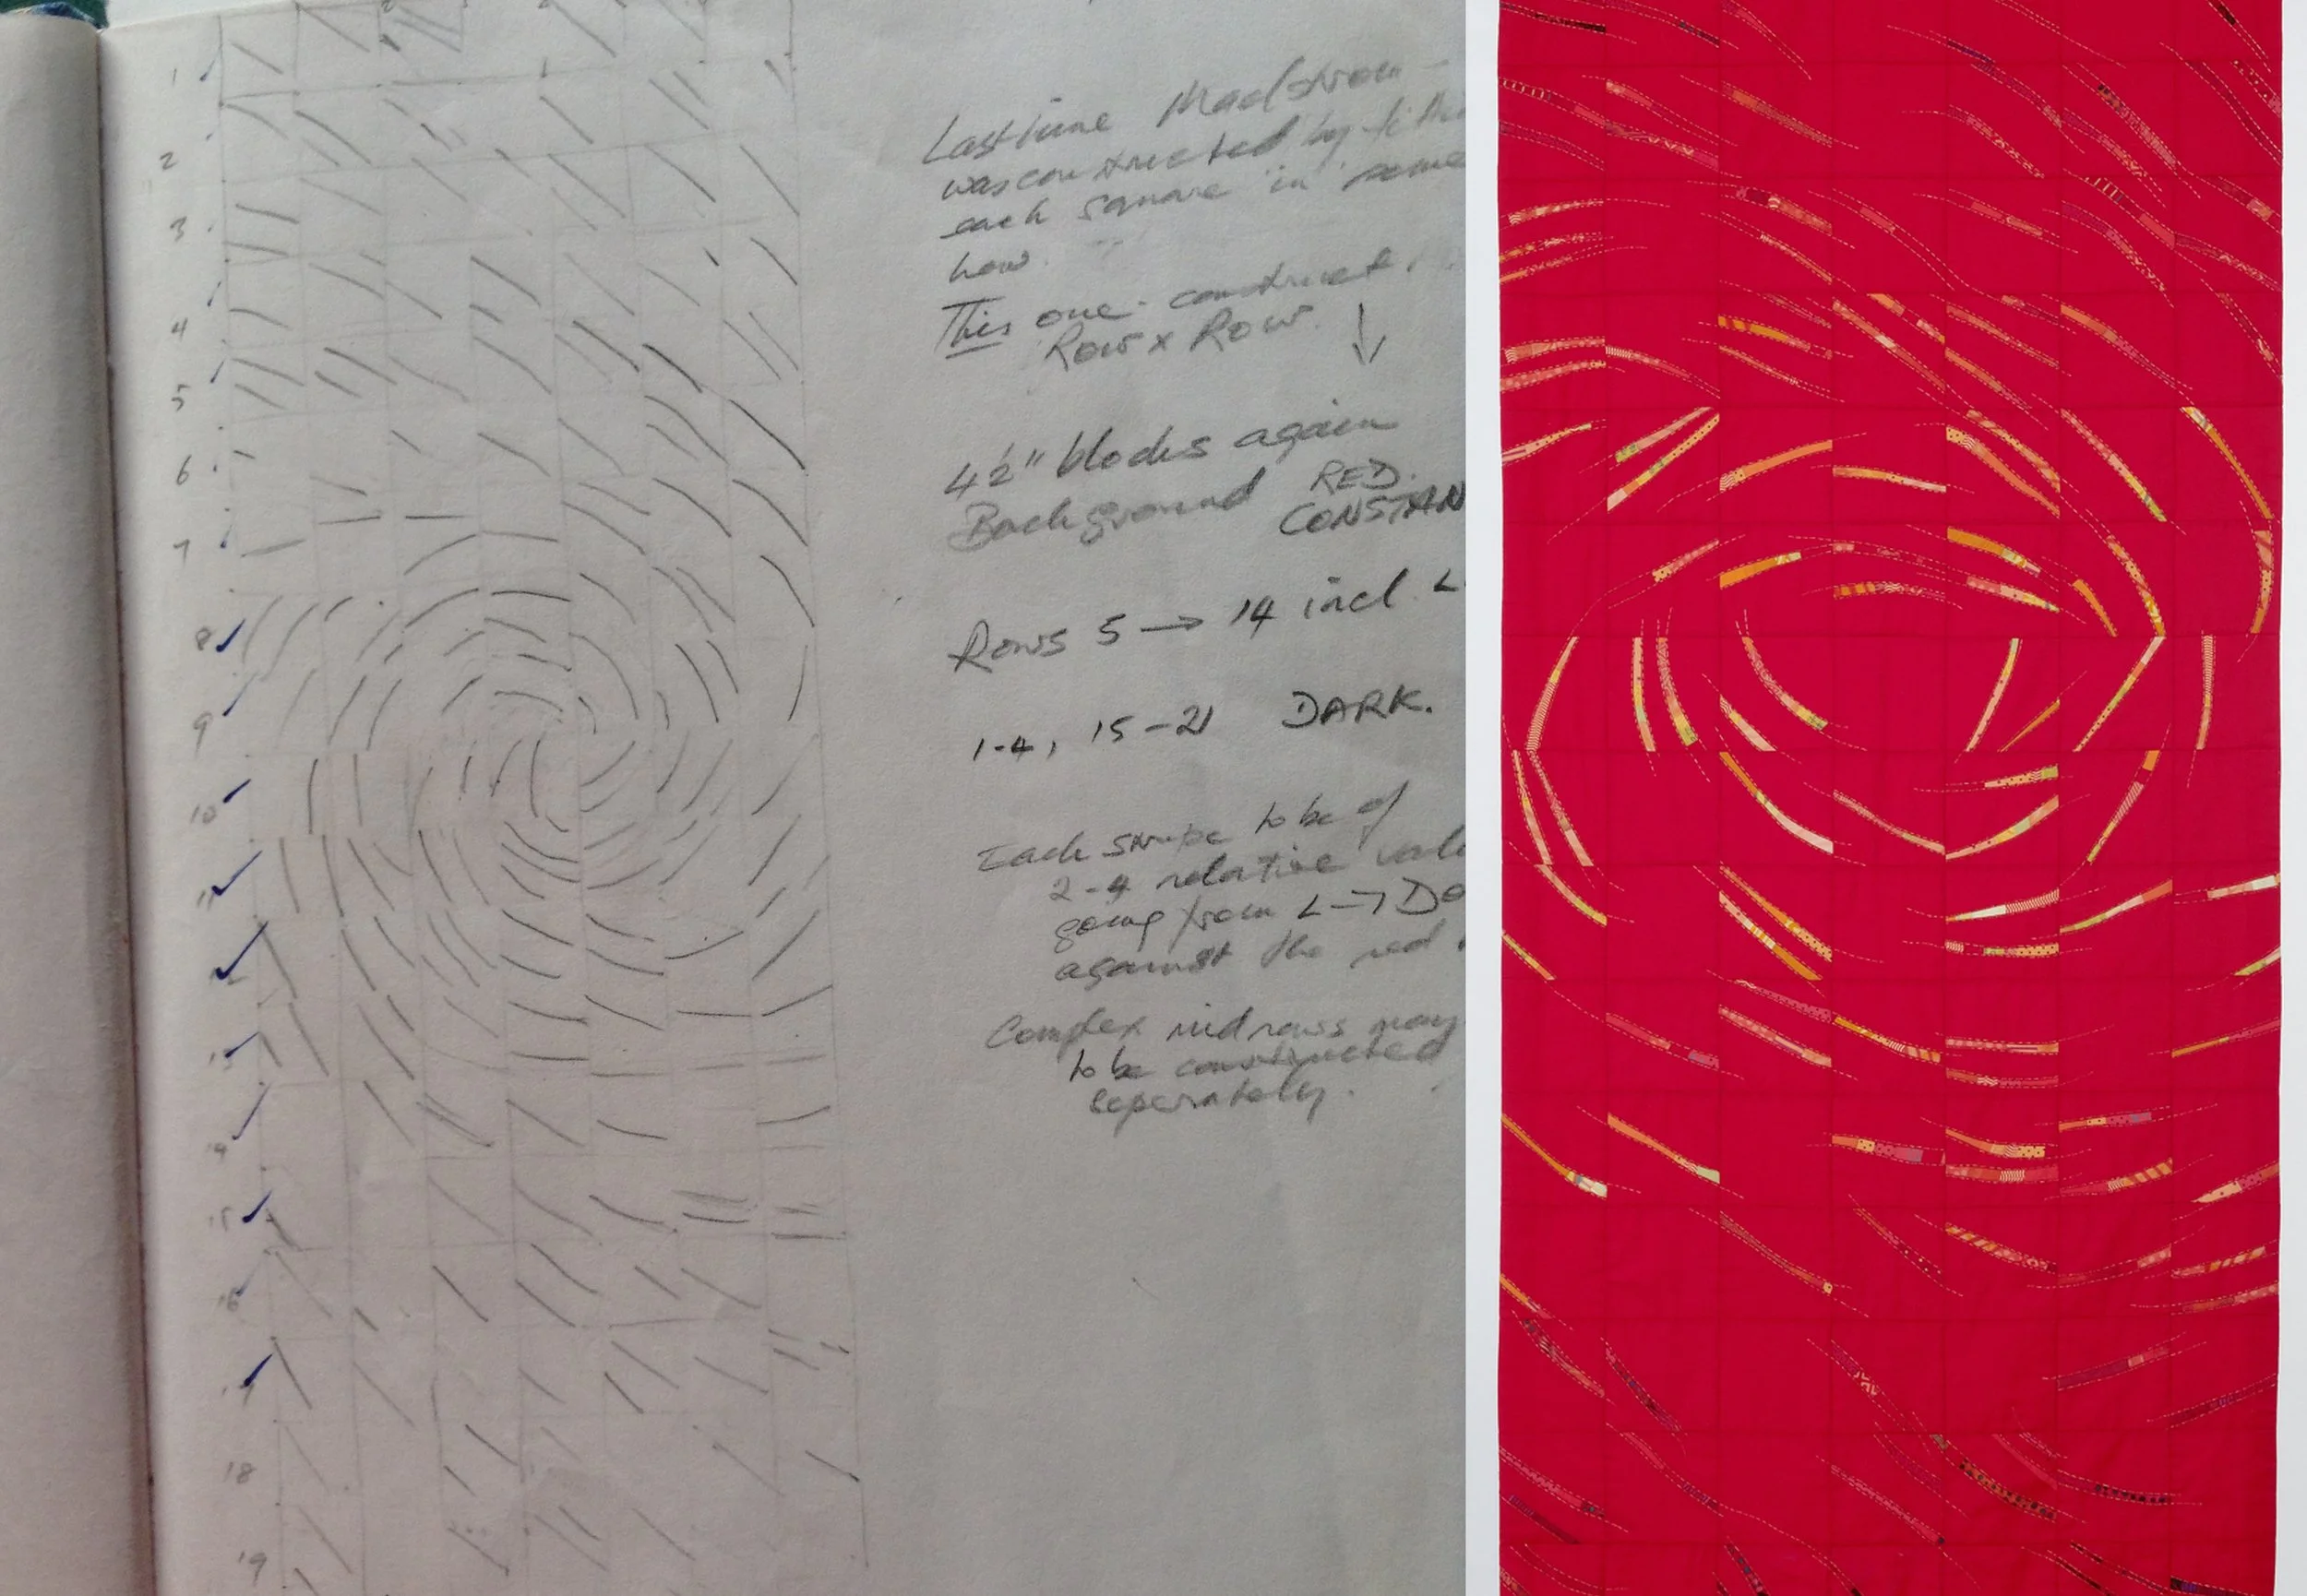 1
2
3
4
5
6
7
8
9
10
11
12
13
14
15
16
17
18
19
Last time Maelstrom -
was constructed by
each square "in" some
how.
This one - construct
Row x Row.
4½" blocks again
Background RED.
CONSTAN
Rows 5 → 14 incl. L
1-4, 15-21 DARK.
Each stripe to be of
2-4 relative valu
going from L → D
against the red
Complex mid rows may
to be constructed
seperately.